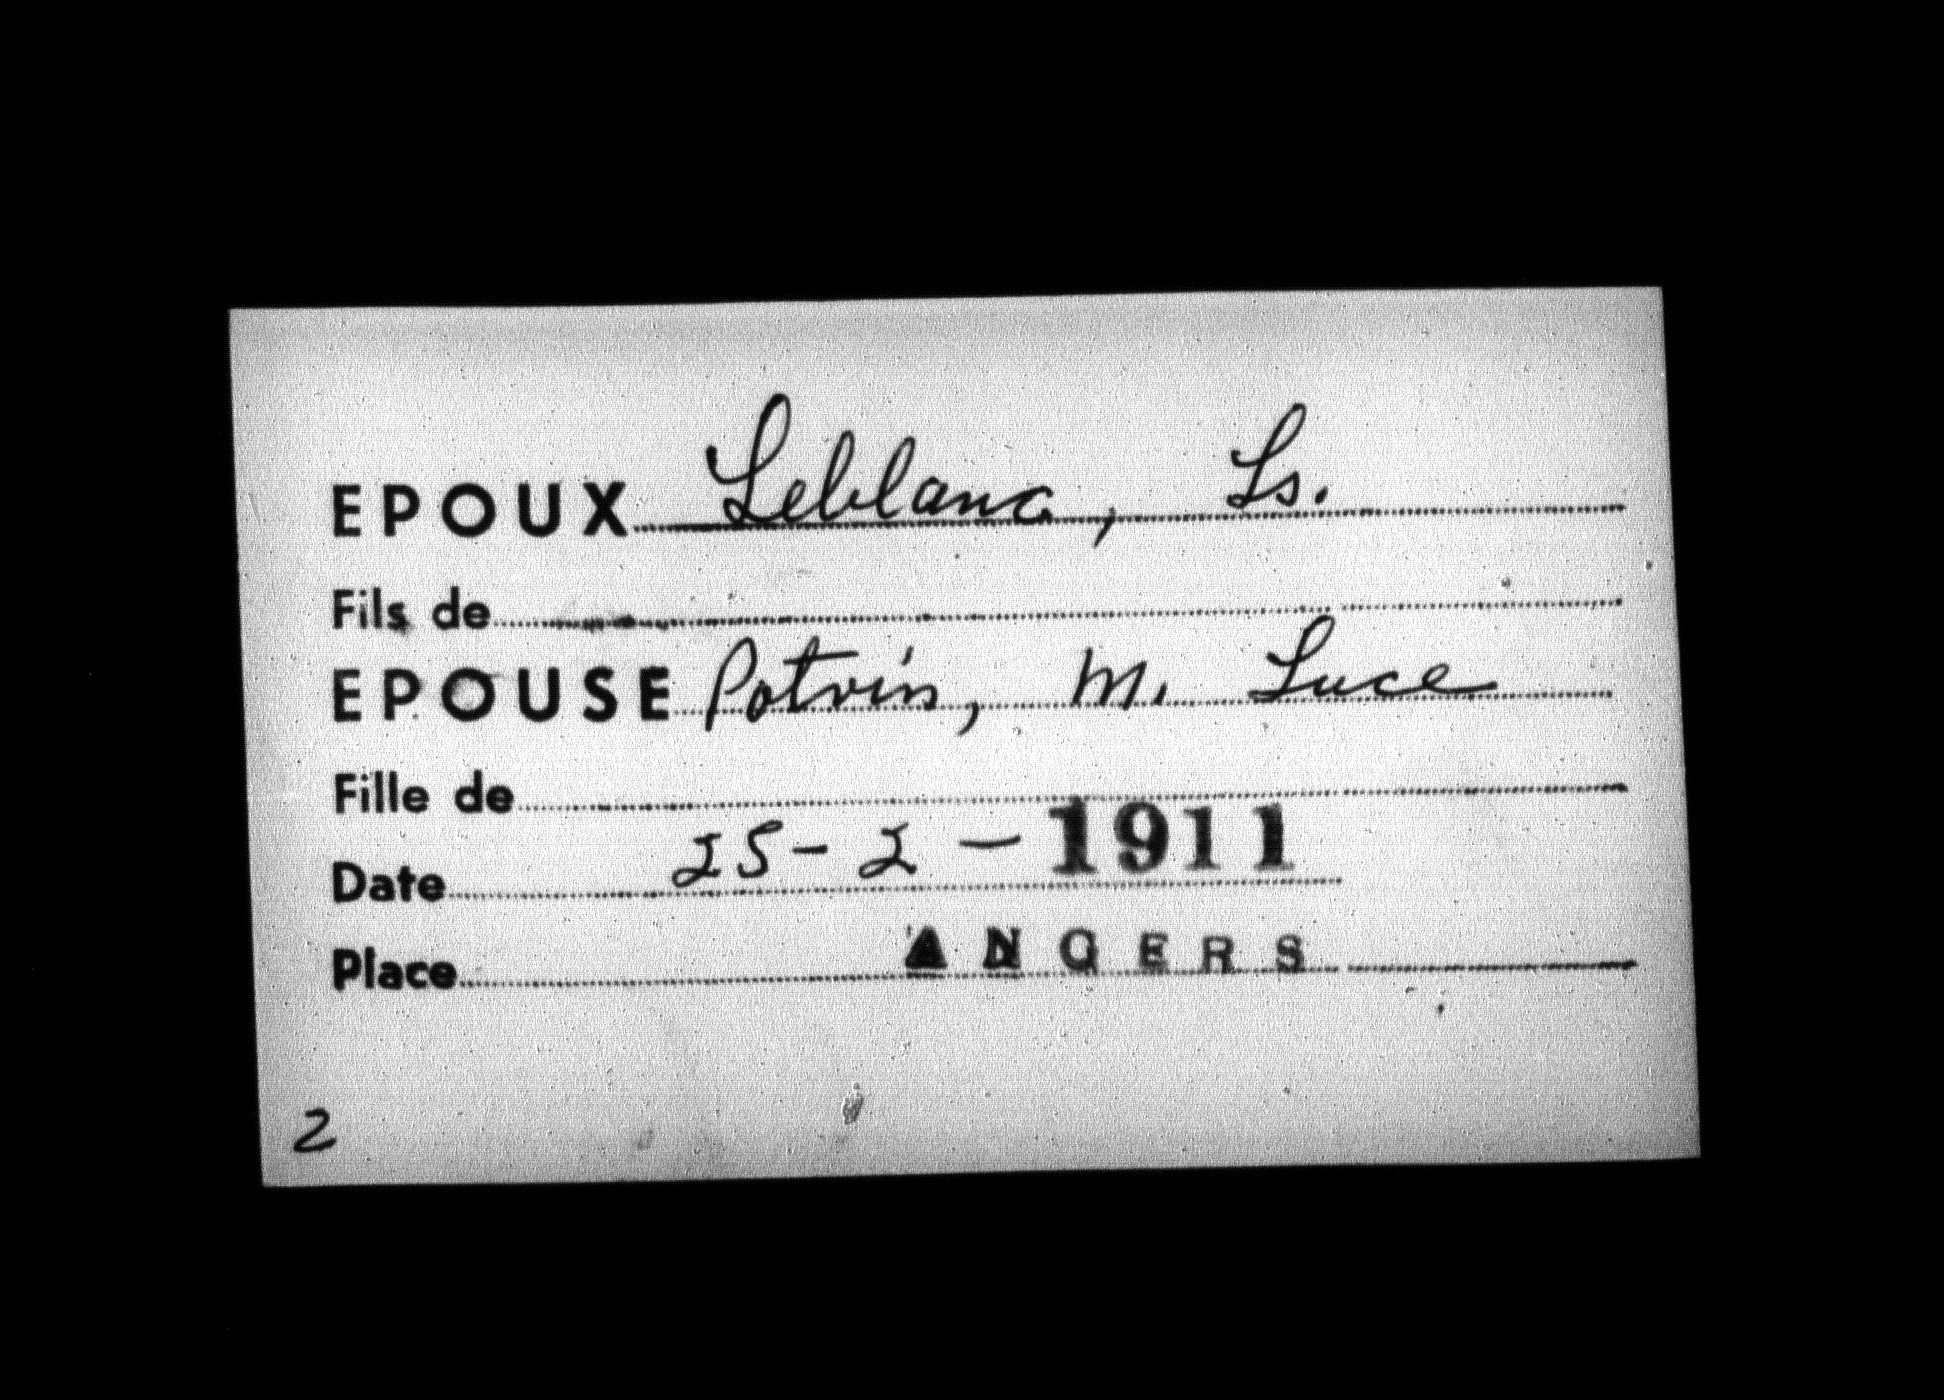 EPOUX Leblanc, Ls.
Fils de
EPOUSE Potvin, M. Luce
Fille de
Date 25-2-1911
Place ANGERS
2